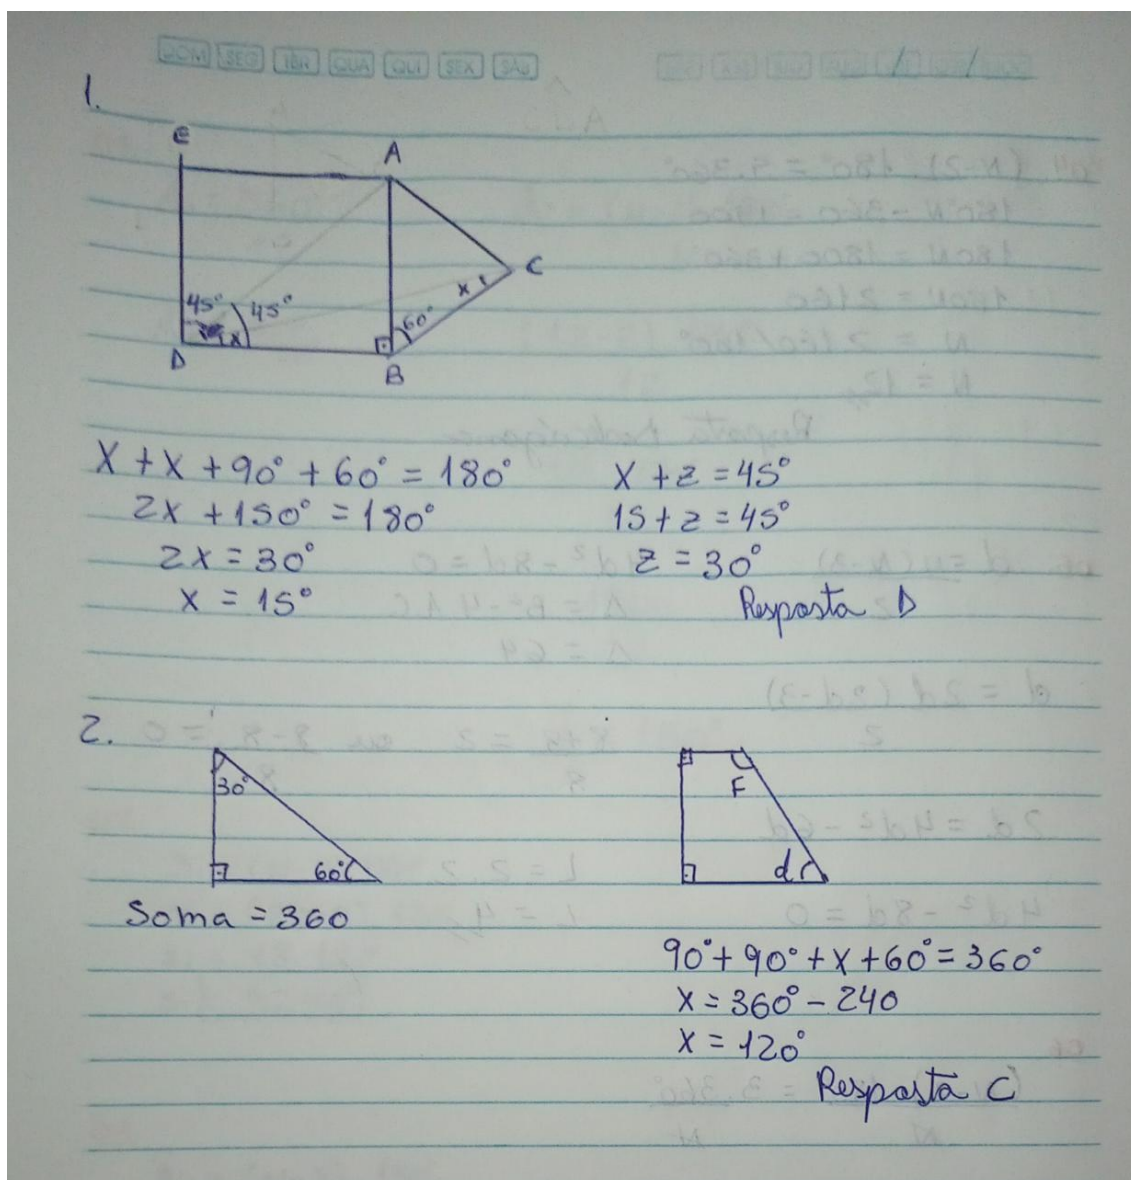 DOM SEG TER QUA QUI SEX SÁB
1.
E
A
C
45° 45°
x
60°
x
D
B
X + X + 90° + 60° = 180°
2X + 150° = 180°
2X = 30°
X = 15°
X + z = 45°
15 + z = 45°
z = 30°
Resposta D
2.
30°
60°
Soma = 360
F
d
90° + 90° + X + 60° = 360°
X = 360° - 240
X = 120°
Resposta C